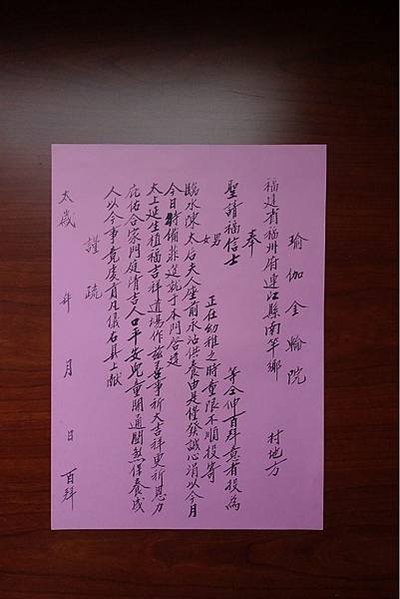 瑜伽金輪院
福建省福州府連江縣南竿鄉 村地方
奉
聖請福信士 等仝仲百拜意者投為
男女 正在幼稚之時童限不順投寄
臨水陳太后夫人座前永沾供養由是僅發誠心涓以今月
今日特備菲筵就于本門啓建
太上延生植福吉祥道場作茲善事祈天吉祥更祈恩力
庇佑合家門庭清吉人口平安兒童開通關煞保養成
人以今事竟虔貢凡儀右具上献
謹疏
太歲 年 月 日 百拜